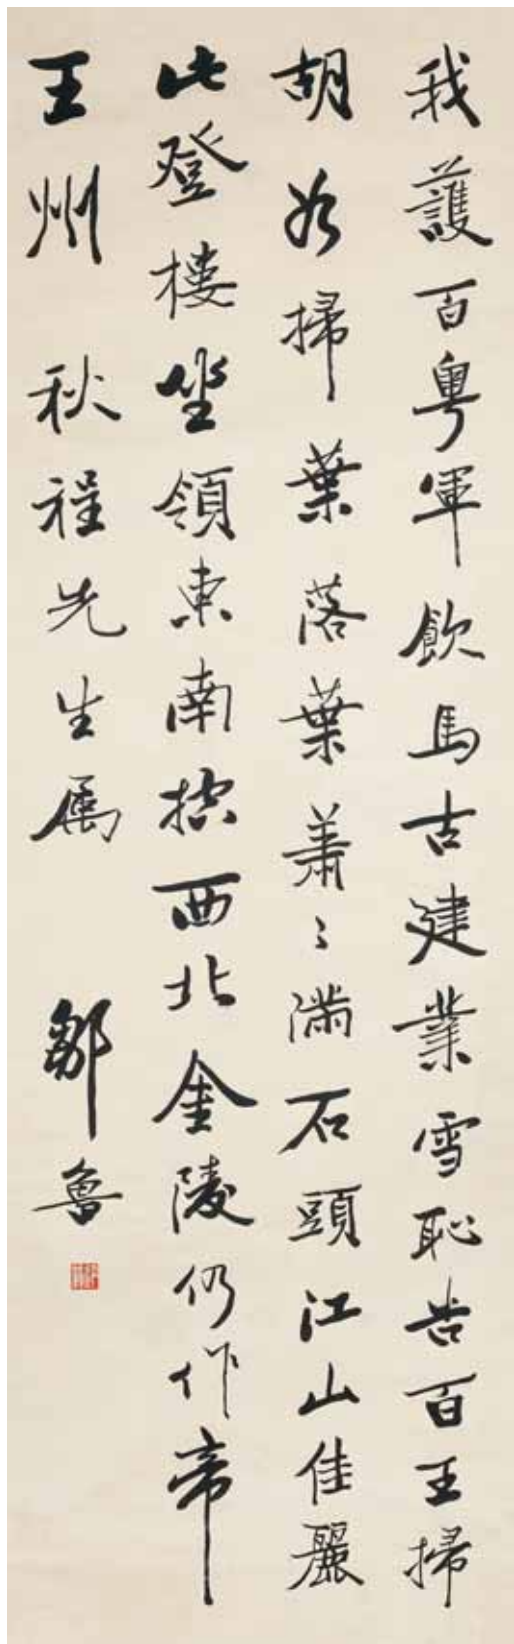 我護百粵軍飲馬古建業雪恥告百王掃
胡如掃葉落葉蕭〻滿石頭江山佳麗
此登樓坐領東南控西北金陵仍作帝
王州 秋程先生属 鄒魯